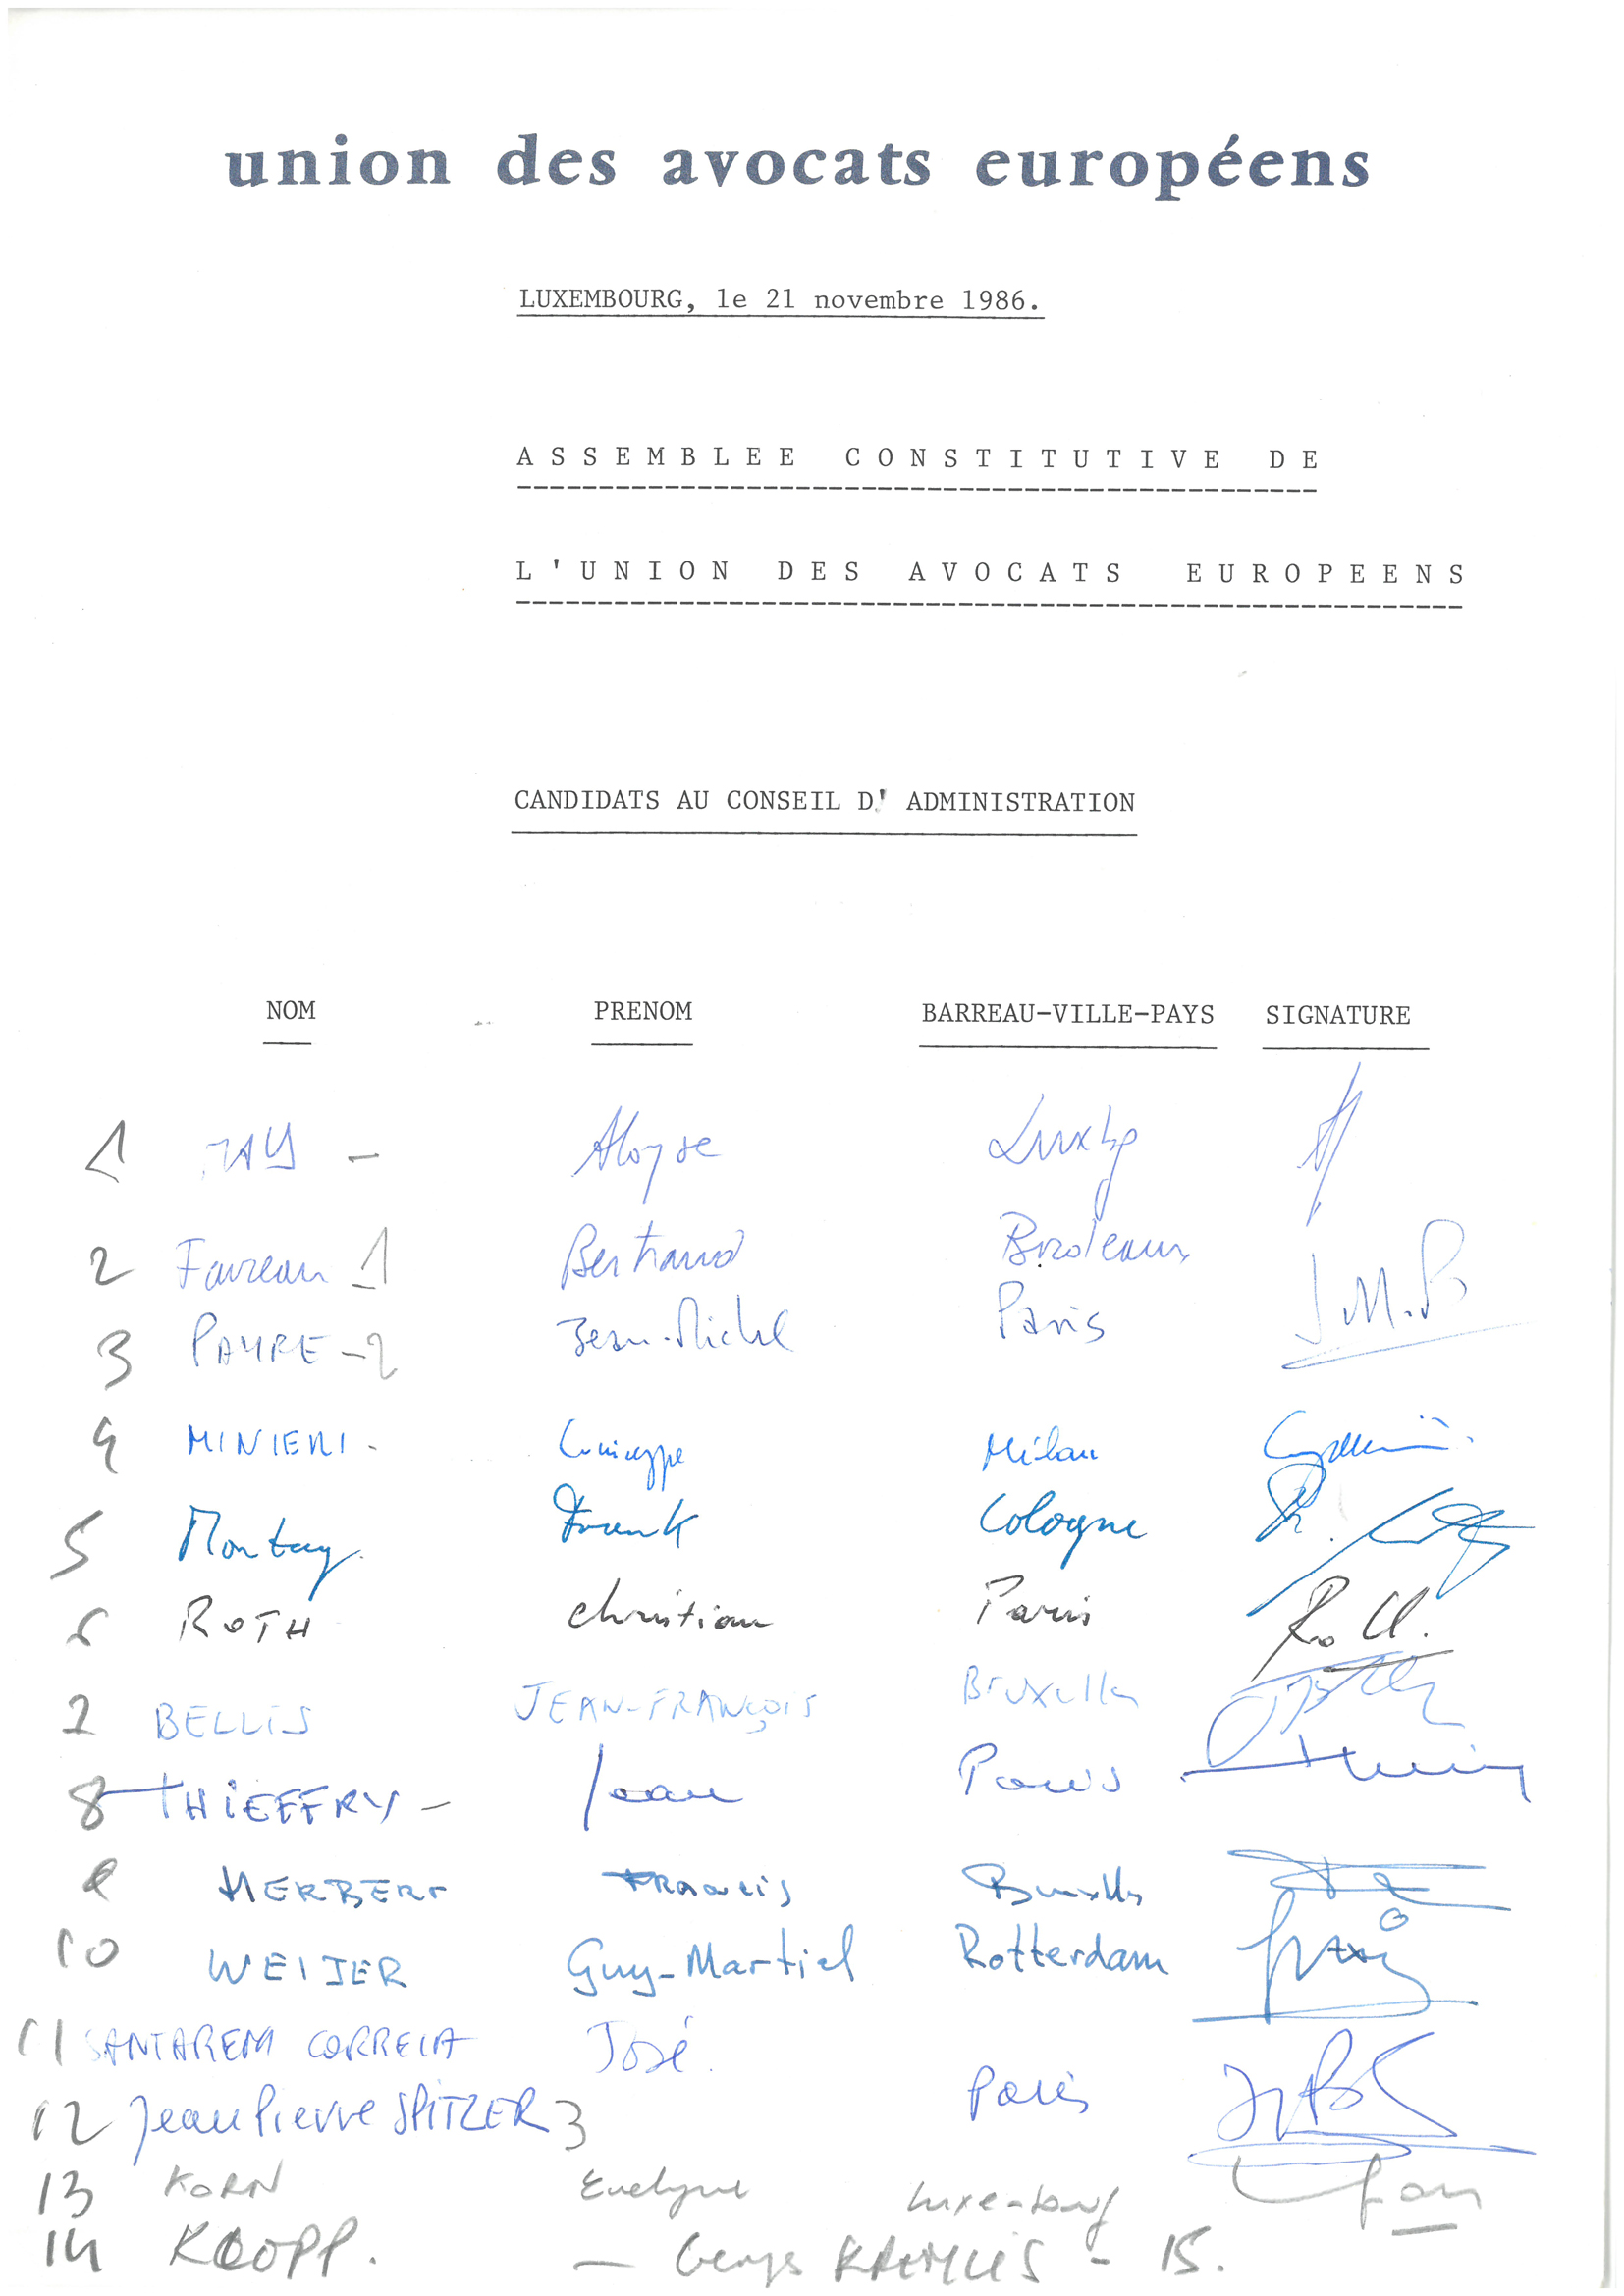 union des avocats européens
LUXEMBOURG, le 21 novembre 1986.
ASSEMBLEE CONSTITUTIVE DE
L'UNION DES AVOCATS EUROPEENS
CANDIDATS AU CONSEIL D' ADMINISTRATION
NOM PRENOM BARREAU-VILLE-PAYS SIGNATURE
1 MAY - Aloyse Luxbg
2 Favreau 1 Bertrand Bordeaux
3 PAYRE - 2 Jean-Michel Paris J M.P
4 MINIERI - Giuseppe Milan
5 Montag Frank Cologne
6 ROTH Christian Paris Roth.
7 BELLIS JEAN-FRANÇOIS Bruxelles
8 THIEFFRY - Jean Paris
9 HERBERT FRANCIS Bruxelles
10 WEIJER Guy-Martial Rotterdam
11 SANTAREM CORREIA José
12 Jean Pierre SPITZER 3 Paris
13 KORN Evelyne Luxembourg
14 KOOPP. - Georges - 15.